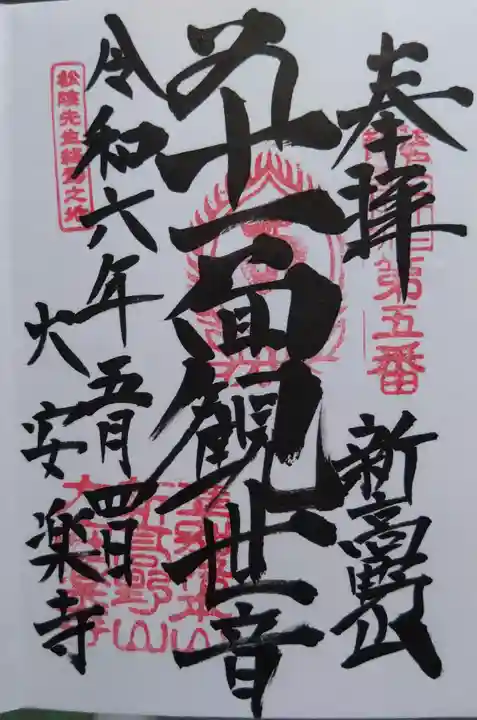 奉拝
第五番
新高野山
十一面観世音
令和六年五月四日
大安楽寺
松陰先生終焉之地